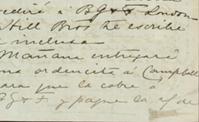 á BG&F London
Still Brot le escribe
inclusa
Mañana entregaré
una ordencita á Campbell
para que la cobre á
y pague la